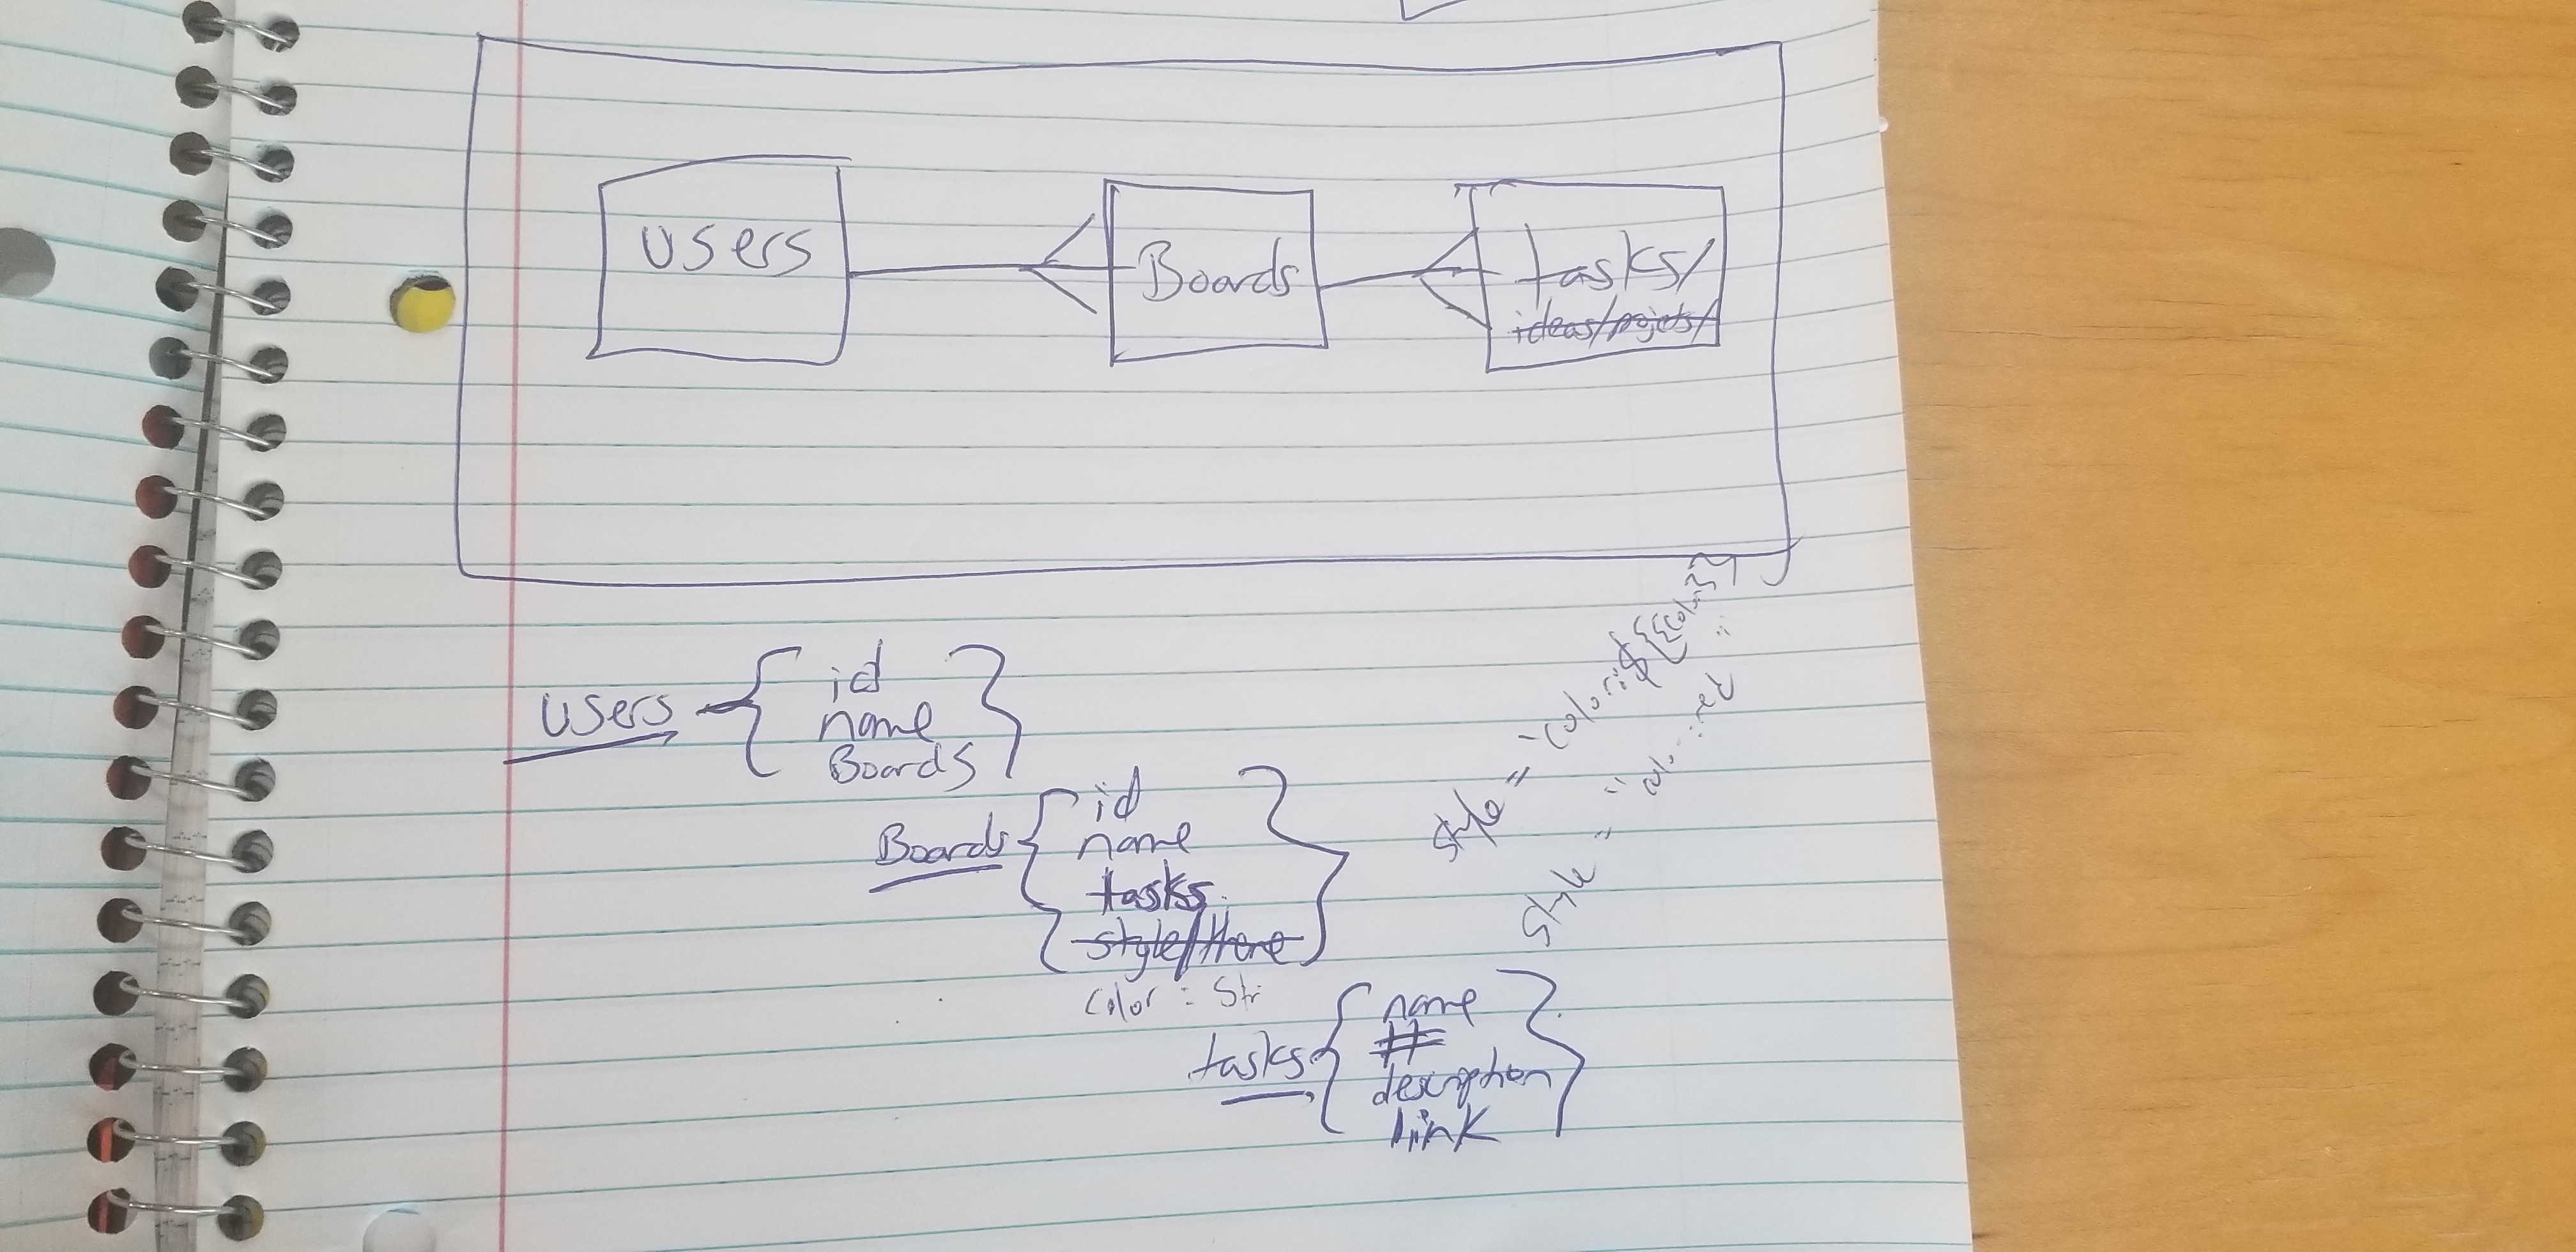 users
Boards
tasks/
ideas/projets/
users { id
name
Boards }
Boards { id
name
tasks
style/
color = Str
tasks { name
#
description
link }
style = "color:
style = "color:red